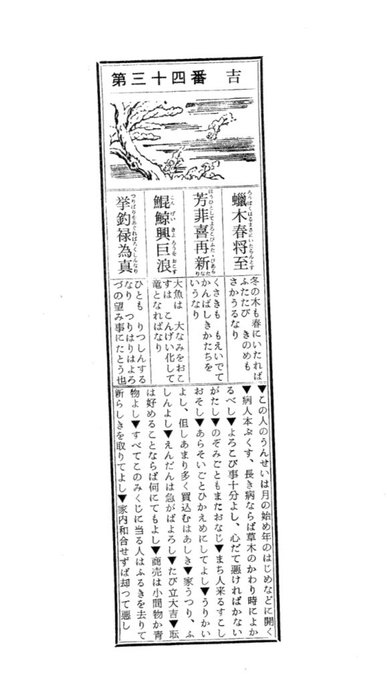 第三十四番 吉
蠟木春将至
芳菲喜再新
鯤鯨興巨浪
挙釣禄為真
冬の木も春にいたれば
ふたたび きのめも
さかうるなり
くさきも もえいでて
かんばしきかたちを
いうなり
大魚は 大なみをおこ
すは こんげい化して
竜となればなり
ひとも りつしんする
なり つりはりはよろ
づの望み事にたとう也
▼この人のうんせいは月の始め年のはじめなどに開く
▼病人本ぷくす、長き病ならば草木のかわり時によか
るべし▼よろこび事十分よし、心だて悪ければかない
がたし▼のぞみごともまたおなじ▼まち人来るすこし
おそし▼あらそいごとひかえめにしてよし▼うりかい
よし、但しあまり多く買込むはあしき▼家うつり、ふ
しんよし▼えんだんは急がばよろし▼たび立大吉▼転
は好めることならば何にてもよし▼商売は小間物か青
物よし▼すべてこのみくじに当る人はふるきを去りて
新らしきを取りてよし▼家内和合せずば却って悪し